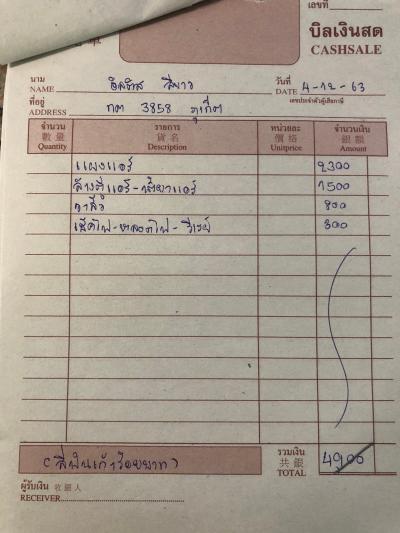 เลขที่
บิลเงินสด
CASHSALE
นาม
NAME อิสซูซุ สีขาว
วันที่
DATE 4-12-63
เลขประจำตัวผู้เสียภาษี
ที่อยู่
ADDRESS กต 3858 ภูเก็ต
จำนวน รายการ หน่วยละ จำนวนเงิน
數量 貨名 價格 銀額
Quantity Description Unitprice Amount
แผงแอร์ 2300
ล้างตู้แอร์-น้ำยาแอร์ 1500
800
เช็คไฟ-หลอดไฟ-รีเรย์ 300
(สี่พันเก้าร้อยบาท)
รวมเงิน
共銀
TOTAL 4900
ผู้รับเงิน 收銀人
RECEIVER